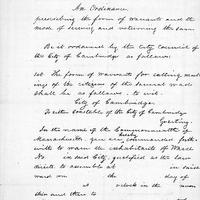 An Ordinance
prescribing the form of warrants and the
mode of serving and returning the same.
Be it ordained by the City Council of
the City of Cambridge as follows:
1st. The form of warrants for calling meet-
ings of the citizens of the several wards
shall be as follows, to wit:
City of Cambridge
To either Constable of the City of Cambridge
Greeting.
In the name of the Commonwealth of
Massachusetts, you are hereby commanded forth-
with to warn the inhabitants of Ward
No. in said City, qualified as the law
directs, to assemble at in said
ward on the day of
at o'clock in the noon
then and there to